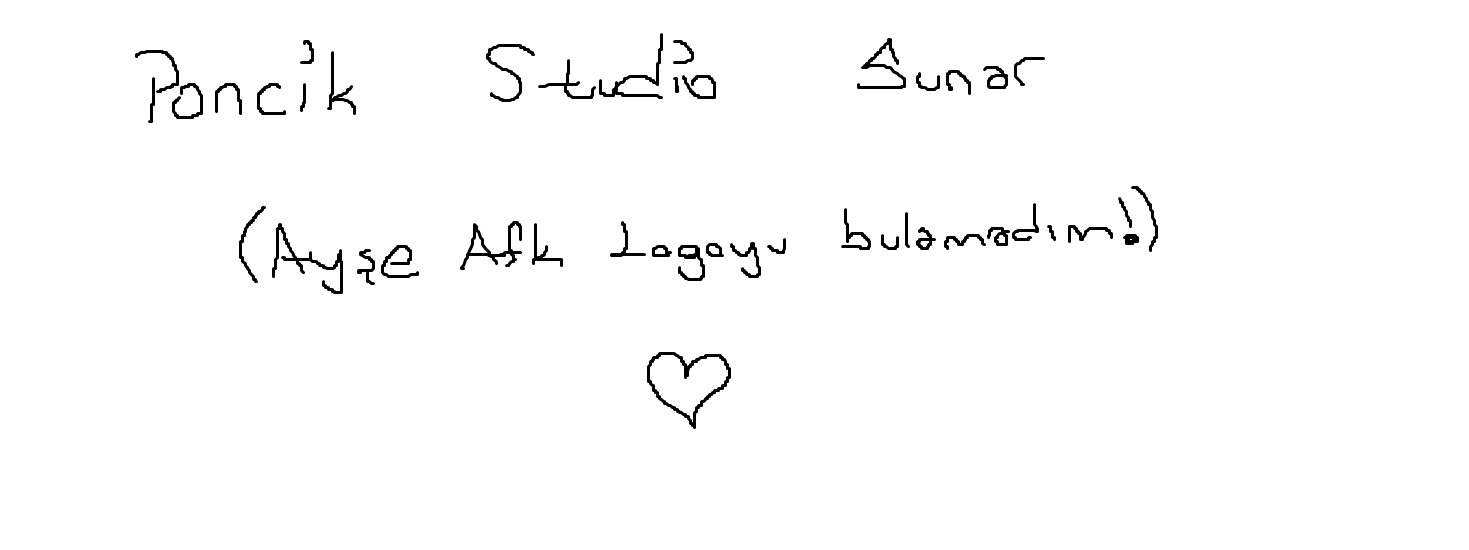 Poncik Studio Sunar
(Ayşe Afk Logoyu bulamadım!)